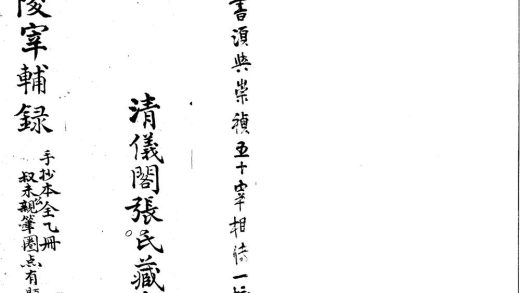 書須與崇禎五十宰相傳一
清儀閣張氏藏
陵宰輔录
手抄本全乙冊
叔未親筆圈点有